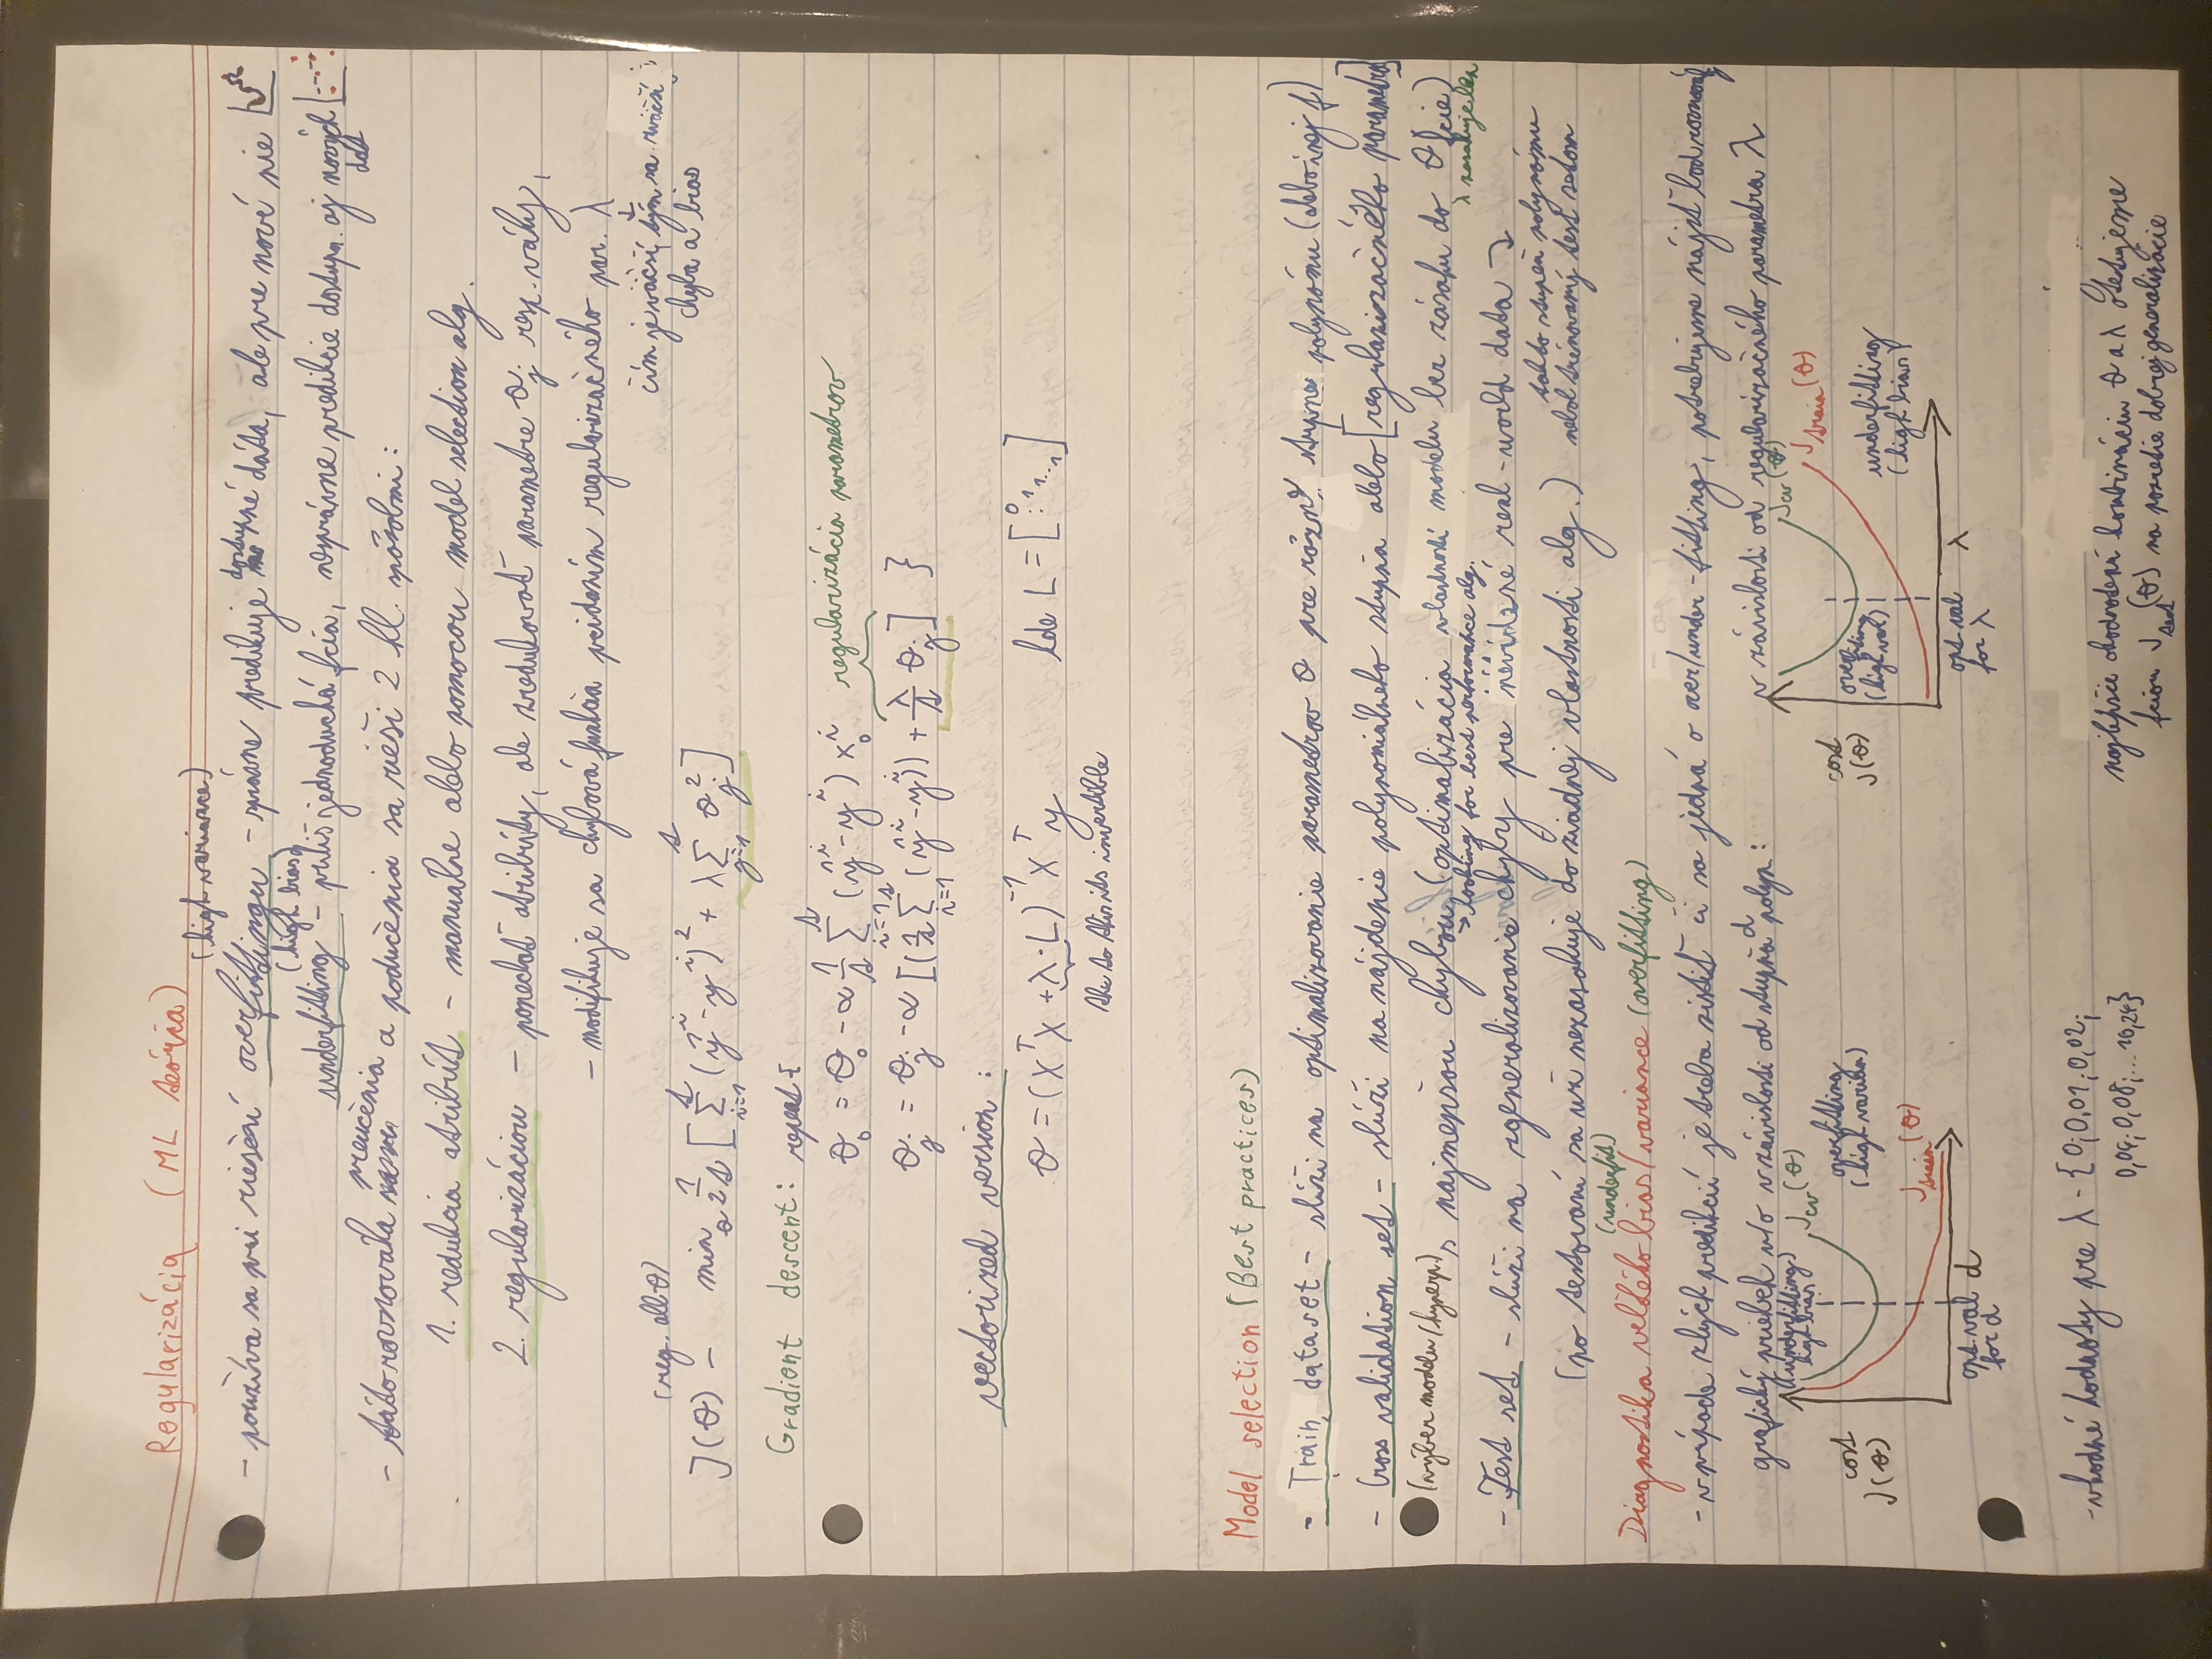 Regularizácia (ML teória)
(high variance)
- používa sa pri riešení overfittingu - správne predikuje dostupné dáta, ale pre nové nie
(high bias)
underfitting - príliš jednoduchá fcia, nesprávne predikcie dostupn. aj nových
dát
- táto rovnováha preučenia a podučenia sa rieši 2 hl. spôsobmi:
1. redukcia atribút - manuálne alebo pomocou model selection alg.
2. regularizáciou - ponechať atribúty, ale zredukovať parametre θj resp. váhy,
- modifikuje sa chybová funkcia pridaním regularizačného par. λ
↓
čím je väčší, tým sa zväčší
chyba a bias
(reg. all θ)
J(θ) - min θ 1/2s [ s Σ i=1 (ŷ^i - y^i)^2 + λ s Σ j=1 θj^2 ]
Gradient descent: repeat {
θ0 = θ0 - α 1/s s Σ i=1 (ŷ^i - y^i) x0^i regularizácia parametrov
θj = θj - α [(1/s s Σ i=1 (ŷ^i - y^i)) + λ/s θj] }
vectorized version:
θ = (X^T X + λ·L)^-1 X^T y kde L = [0 : 1 1...1]
thx to this its invertible
Model selection (Best practices)
- Train dataset - slúži na optimalizovanie parametrov θ pre rôzne stupne polynómu (alebo inej f)
- Cross validation set - slúži na nájdenie polynomiálneho stupňa alebo [regularizačného parametra]
(výber modelu/hyperp.) s najmenšou chybou, (optimalizácia vlastností modelu bez zásahu do θ fcie)
→ looking for best performance alg. λ zasahuje len
- Test set - slúži na zgeneralizovanie chyby pre nevidené real-world data
takto stupeň polynómu
(po testovaní sa už nezasahuje do žiadnej vlastnosti alg.) nebol trénovaný test setom
(underfit)
Diagnostika veľkého bias/variance (overfitting)
- v prípade zlých predikcií je treba zistiť či sa jedná o over/under-fitting, potrebujeme nájsť bod rovnováhy
grafický priebeh u/o v závislosti od stupňa d polyn: v závislosti od regularizačného parametra λ
(underfitting) high bias Jcv(θ) Jcv(θ)
Jtrain(θ)
cost J(θ) overfitting (high varian) cost J(θ) overfitting (high val) underfitting (high bias)
Jtrain(θ)
opt. val for d d opt. val for λ λ
- vhodné hodnoty pre λ - {0; 0,01; 0,02;
0,04; 0,08; ... 10,24}
najlepšie ohodnotenú kombináciu θ a λ otestujeme
fciou Jtest(θ) na pozretie dobrej generalizácie